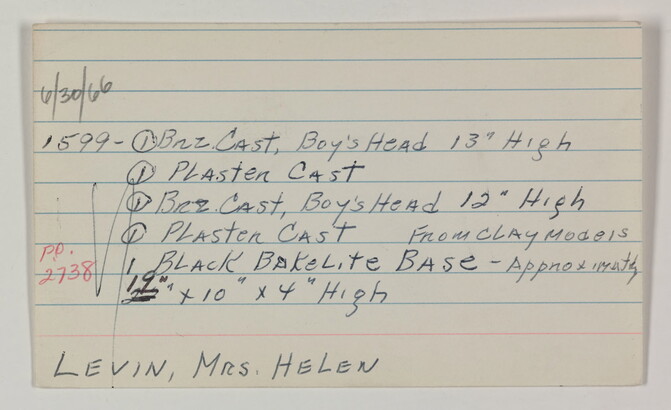 6/30/66
1599 - ① Brz. Cast, Boy's Head 13" High
① Plaster Cast
① Brz. Cast, Boy's Head 12" High
① Plaster Cast From Clay Models
1 Black Bakelite Base - Approximatly
PP.
2738
12" x 10" x 4" High
Levin, Mrs. Helen